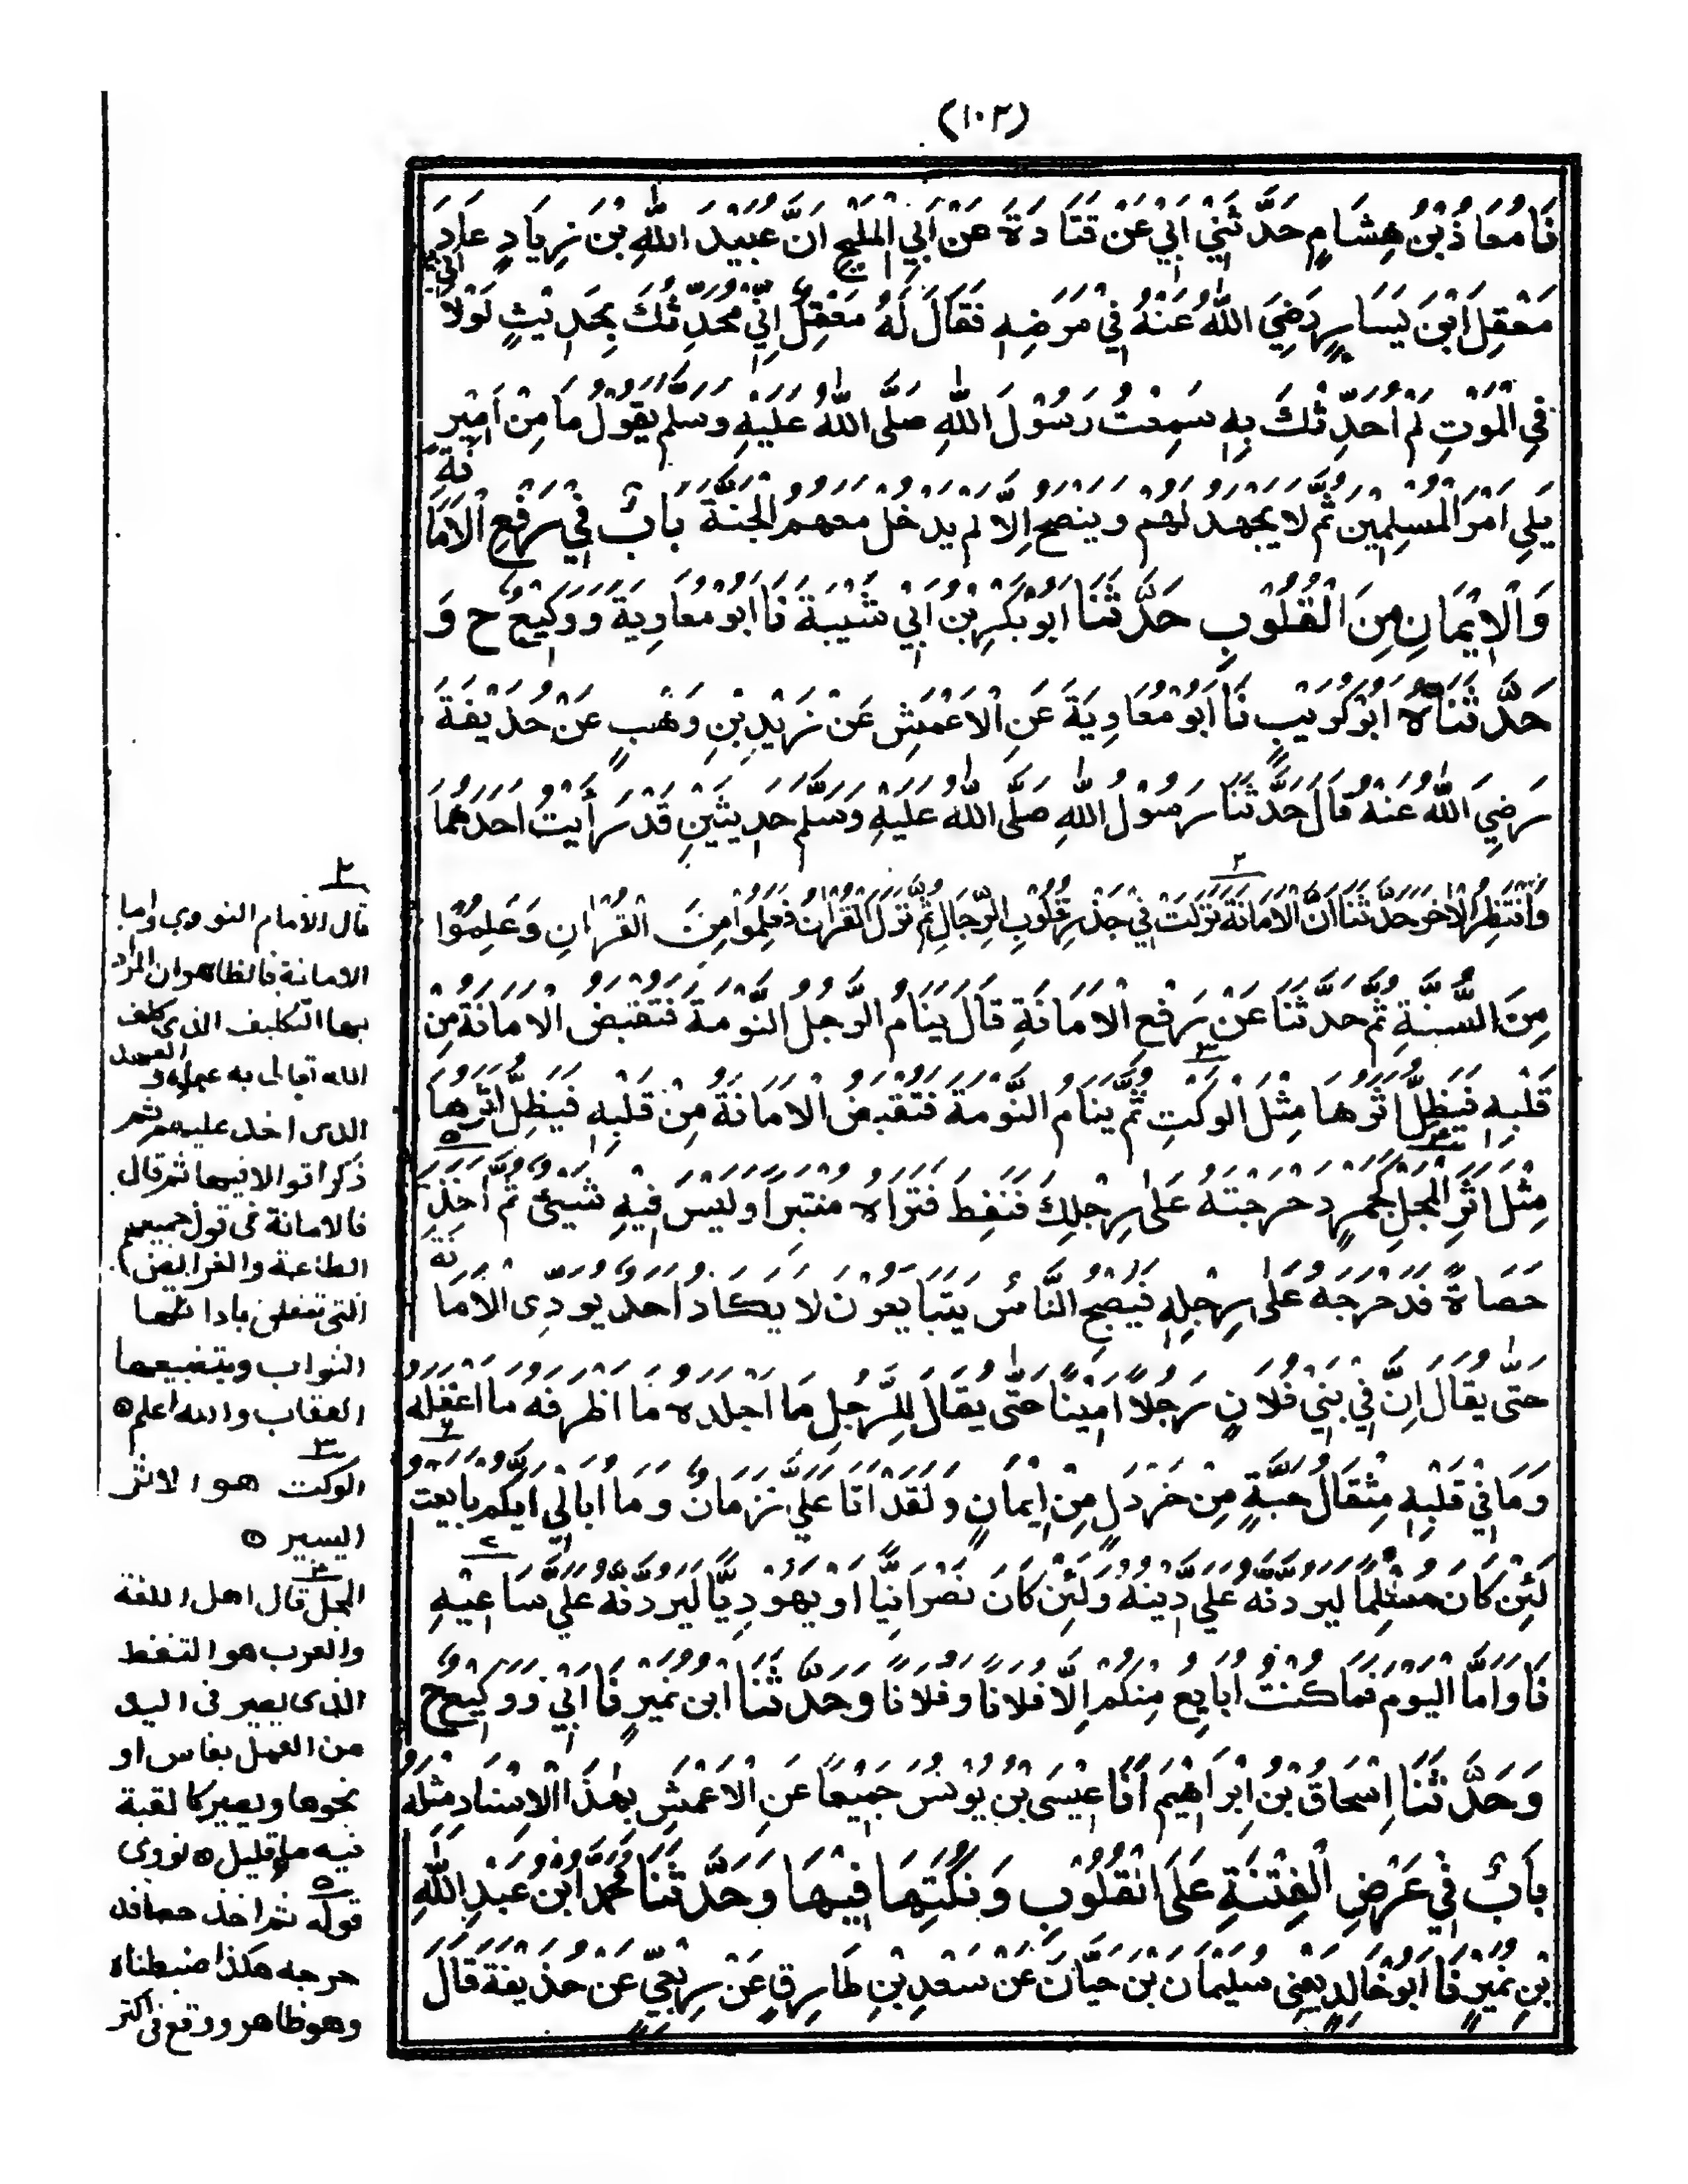 (١٠٢)
نَا مُعَاذُ بْنُ هِشَامٍ حَدَّثَنِيْ اَبِيْ عَنْ قَتَادَةَ عَنْ اَبِي الْمَلِيْحِ اَنَّ عُبَيْدَ اللّٰهِ بْنَ زِيَادٍ عَادَ
مَعْقِلَ ابْنَ يَسَارٍ رَضِيَ اللّٰهُ عَنْهُ فِيْ مَرَضِهٖ فَقَالَ لَهُ مَعْقِلٌ اِنِّيْ مُحَدِّثُكَ بِحَدِيْثٍ لَوْلَا اَنِّيْ
فِي الْمَوْتِ لَمْ اُحَدِّثْكَ بِهٖ سَمِعْتُ رَسُوْلَ اللّٰهِ صَلَّى اللّٰهُ عَلَيْهِ وَسَلَّمَ يَقُوْلُ مَا مِنْ اَمِيْرٍ
يَلِيْ اَمْرَ الْمُسْلِمِيْنَ ثُمَّ لَا يَجْهَدُ لَهُمْ وَيَنْصَحُ اِلَّا لَمْ يَدْخُلْ مَعَهُمُ الْجَنَّةَ بَابٌ فِيْ رَفْعِ الْاَمَانَةِ
وَالْاِيْمَانِ مِنَ الْقُلُوْبِ حَدَّثَنَا اَبُوْ بَكْرِ بْنُ اَبِيْ شَيْبَةَ نَا اَبُوْ مُعَاوِيَةَ وَوَكِيْعٌ ح وَ
حَدَّثَنَاهُ اَبُوْ كُرَيْبٍ نَا اَبُوْ مُعَاوِيَةَ عَنِ الْاَعْمَشِ عَنْ زَيْدِ بْنِ وَهْبٍ عَنْ حُذَيْفَةَ
رَضِيَ اللّٰهُ عَنْهُ قَالَ حَدَّثَنَا رَسُوْلُ اللّٰهِ صَلَّى اللّٰهُ عَلَيْهِ وَسَلَّمَ حَدِيْثَيْنِ قَدْ رَأَيْتُ اَحَدَهُمَا
وَاَنْتَظِرُ الْاٰخَرَ حَدَّثَنَا اَنَّ الْاَمَانَةَ نَزَلَتْ فِيْ جَذْرِ قُلُوْبِ الرِّجَالِ ثُمَّ نَزَلَ الْقُرْاٰنُ فَعَلِمُوْا مِنَ الْقُرْاٰنِ وَعَلِمُوْا
مِنَ السُّنَّةِ ثُمَّ حَدَّثَنَا عَنْ رَفْعِ الْاَمَانَةِ قَالَ يَنَامُ الرَّجُلُ النَّوْمَةَ فَتُقْبَضُ الْاَمَانَةُ مِنْ
قَلْبِهٖ فَيَظِلُّ اَثَرُهَا مِثْلَ الْوَكْتِ ثُمَّ يَنَامُ النَّوْمَةَ فَتُقْبَضُ الْاَمَانَةُ مِنْ قَلْبِهٖ فَيَظِلُّ اَثَرُهَا
مِثْلَ اَثَرِ الْمَجْلِ كَجَمْرٍ دَحْرَجْتَهُ عَلٰى رِجْلِكَ فَنَفِطَ فَتَرَاهُ مُنْتَبِرًا وَلَيْسَ فِيْهِ شَيْئٌ ثُمَّ اَخَذَ
حَصَاةً فَدَحْرَجَهُ عَلٰى رِجْلِهٖ فَيُصْبِحُ النَّاسُ يَتَبَايَعُوْنَ لَا يَكَادُ اَحَدٌ يُوَدِّى الْاَمَانَةَ
حَتّٰى يُقَالَ اِنَّ فِيْ بَنِيْ فُلَانٍ رَجُلًا اَمِيْنًا حَتّٰى يُقَالَ لِلرَّجُلِ مَا اَجْلَدَهُ مَا اَظْرَفَهُ مَا اَعْقَلَهُ
وَمَا فِيْ قَلْبِهٖ مِثْقَالُ حَبَّةٍ مِنْ خَرْدَلٍ مِنْ اِيْمَانٍ وَلَقَدْ اَتَا عَلَيَّ زَمَانٌ وَمَا اُبَالِيْ اَيَّكُمْ بَايَعْتُ
لَئِنْ كَانَ مُسْلِمًا لَيَرُدَّنَّهُ عَلَيَّ دِيْنُهُ وَلَئِنْ كَانَ نَصْرَانِيًّا اَوْ يَهُوْدِيًّا لَيَرُدَّنَّهُ عَلَيَّ سَاعِيْهِ
فَاَوَامَّا الْيَوْمَ فَمَا كُنْتُ اُبَايِعُ مِنْكُمْ اِلَّا فُلَانًا وَفُلَانًا وَحَدَّثَنَا ابْنُ نُمَيْرٍ نَا اَبِيْ وَوَكِيْعٌ ح
وَحَدَّثَنَا اِسْحَاقُ بْنُ اِبْرَاهِيْمَ اَنَا عِيْسَى بْنُ يُوْنُسَ جَمِيْعًا عَنِ الْاَعْمَشِ بِهٰذَا الْاِسْنَادِ مِثْلَهُ
بَابٌ فِيْ عَرْضِ الْفِتْنَةِ عَلَى الْقُلُوْبِ وَنَكْتِهَا فِيْهَا وَحَدَّثَنَا مُحَمَّدُ ابْنُ عَبْدِ اللّٰهِ
بْنِ نُمَيْرٍ نَا اَبُوْ خَالِدٍ يَعْنِى سُلَيْمَانَ بْنَ حَيَّانَ عَنْ سَعْدِ بْنِ طَارِقٍ عَنْ رِبْعِيٍّ عَنْ حُذَيْفَةَ قَالَ
٢
قال الامام النووى واما
الامانة فالظاهر ان المراد
بها التكليف الذى كلف
الله تعالى به عباده والعهد
الذى اخذ عليهم ثم
ذكر اقوالا فيها ثم قال
فالامانة فى قول جميعهم
الطاعة والفرائض
التى تتعلق باداﺋها
الثواب وبتضييعها
العقاب والله اعلم
٣
الوكت هو الاثر
اليسير
٤
المجل قال اهل اللغة
والعرب هو التنفط
الذى يصير فى اليد
من العمل بفاس او
نحوها ويصير كالقبة
فيه ماء قليل نووى
٥
قوله ثم اخذ حصا فد
حرجه هكذا ضبطناه
وهو ظاهر ووقع فى اكثر